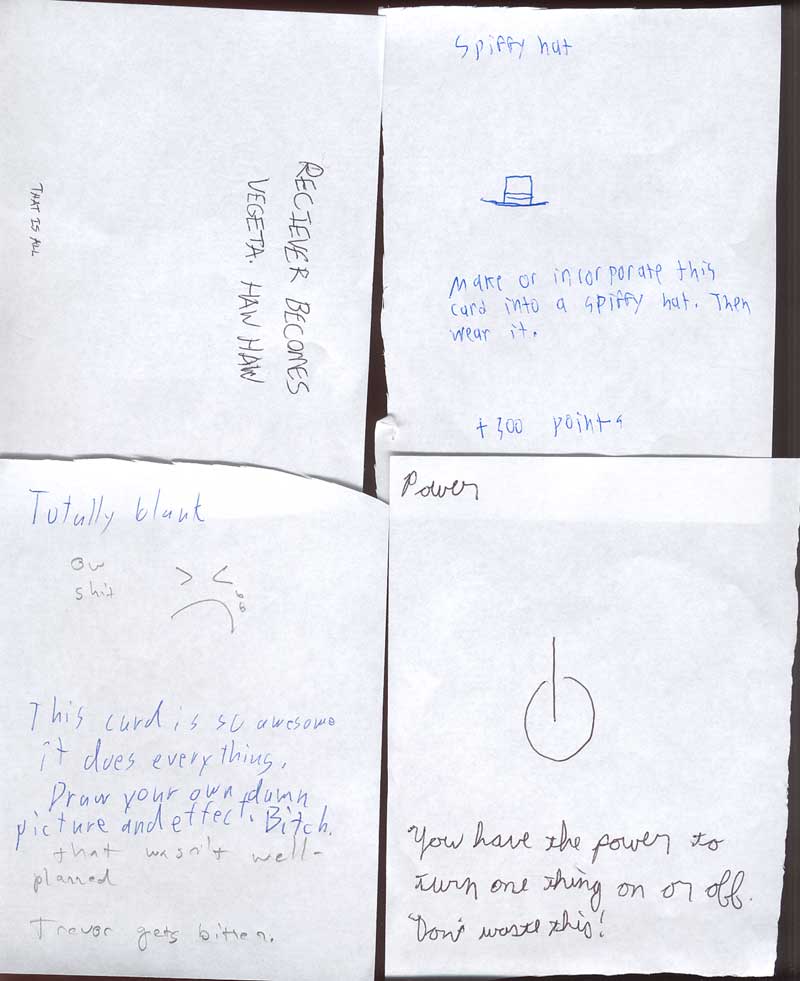 RECIEVER BECOMES
VEGETA. HAW HAW
THAT IS ALL
Spiffy hat
Make or incorporate this
card into a spiffy hat. Then
wear it.
+300 points
Totally blank
Ow
shit
This card is so awesome
it does everything.
Draw your own damn
picture and effect. Bitch.
that wasn't well-
planned
Trevor gets bitten.
Power
You have the power to
turn one thing on or off.
Don't waste this!